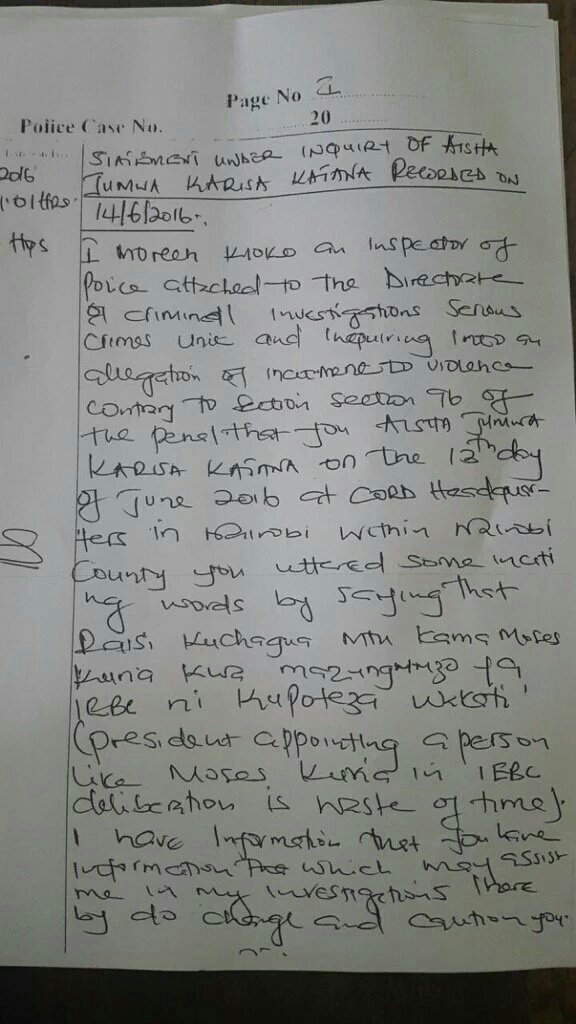 Page No 2
Police Case No.
20
STATEMENT UNDER INQUIRY OF AISHA
JUMWA KARISA KATANA RECORDED ON
14/6/2016.
2016
:01Hrs
Hrs
I Moreen Kioko an Inspector of
Police attached to the Directorate
of criminal Investigations Serious
Crimes Unit and Inquiring Into an
allegation of incitment to violence
Contrary to Section section 96 of
the penal that you AISHA JUMWA
KARISA KATANA on the 12th day
of June 2016 at CORD Headquar-
ters in Nairobi within Nairobi
County you uttered some inciti
ng words by saying that
Raisi Kuchagua Mtu Kama Moses
Kuria Kwa mazungumzo ya
IEBC ni Kupoteza Wakati
(president appointing a person
like Moses Kuria in IEBC
deliberation is waste of time).
I have Information that you have
information which may assist
me in my investigations I here
by do charge and caution you